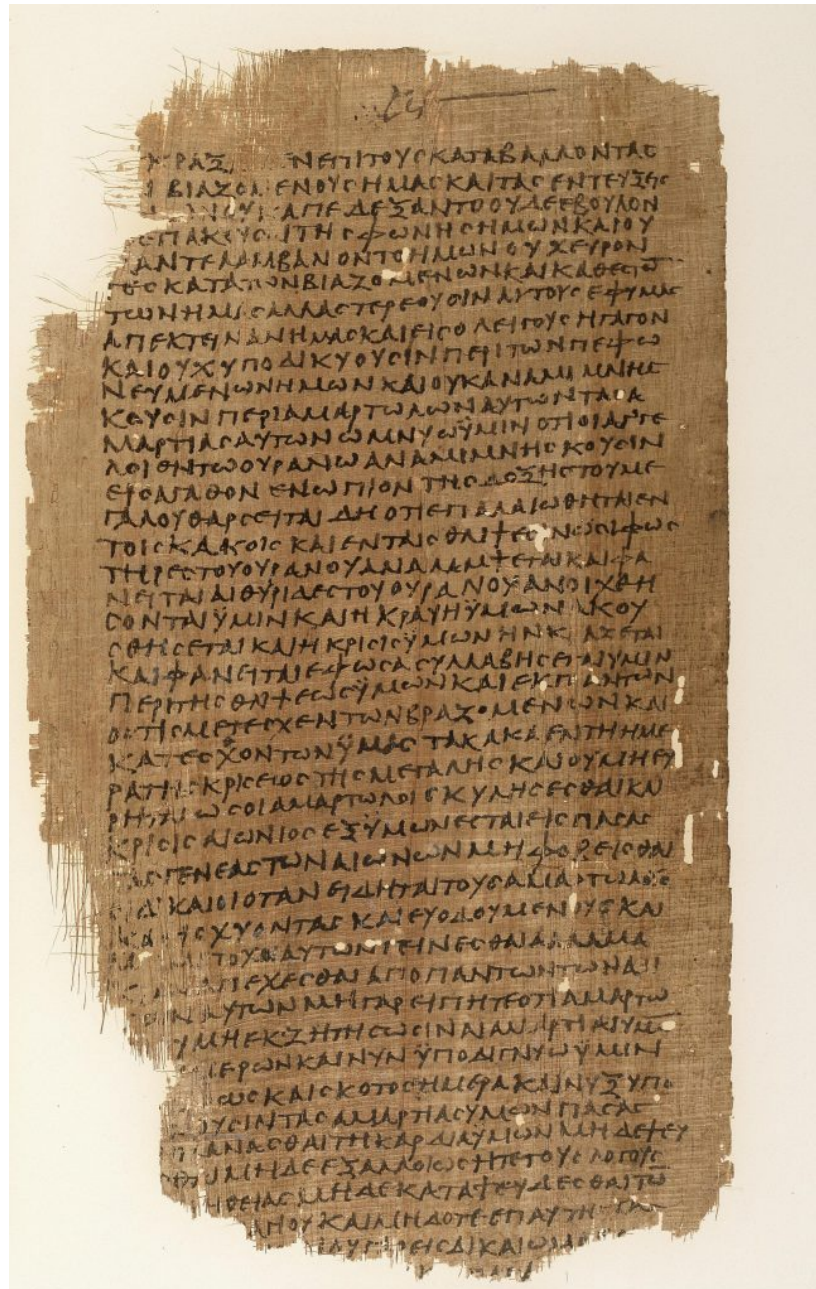 ΚΡΑΞ ΝΕΠΙΤΟΥΣΚΑΤΑΒΑΛΛΟΝΤΑΣ
ΒΙΑΖΟΜΕΝΟΥΣΗΜΑΣΚΑΙΤΑΣΕΝΤΕΥΞΕΙΣ
ΑΠΕΔΕΞΑΝΤΟΟΥΔΕΕΒΟΥΛΟΝ
ΕΠΑΚΟΥΣΑΙΤΗΣΦΩΝΗΣΗΜΩΝΚΑΙΟΥ
ΑΝΤΕΛΑΜΒΑΝΟΝΤΟΗΜΩΝΟΥΧΕΥΡΟΝ
ΤΕΣΚΑΤΑΤΩΝΒΙΑΖΟΜΕΝΩΝΚΑΙΚΑΘΕΣΤΩ
ΤΩΝΗΜΑΣΑΛΛΑΣΤΕΡΕΟΥΣΙΝΑΥΤΟΥΣΕΦΥΜΑΣ
ΑΠΕΚΤΕΙΝΑΝΗΜΑΣΚΑΙΕΙΣΟΛΕΙΓΟΥΣΗΓΑΓΟΝ
ΚΑΙΟΥΧΥΠΟΔΙΚΥΟΥΣΙΝΠΕΡΙΤΩΝΠΕΦΩ
ΝΕΥΜΕΝΩΝΗΜΩΝΚΑΙΟΥΚΑΝΑΜΙΜΝΗΣ
ΚΟΥΣΙΝΠΕΡΙΑΜΑΡΤΩΛΩΝΑΥΤΩΝΤΑΣΑ
ΜΑΡΤΙΑΣΑΥΤΩΝΩΜΝΥΩΫΜΙΝΟΤΙΟΙΑΓΓΕ
ΛΟΙΕΝΤΩΟΥΡΑΝΩΑΝΑΜΙΜΝΗΣΚΟΥΣΙΝ
ΕΙΣΑΓΑΘΟΝΕΝΩΠΙΟΝΤΗΣΔΟΞΗΣΤΟΥΜΕ
ΓΑΛΟΥΘΑΡΣΕΙΤΑΙΔΗΟΤΙΕΠΑΛΑΙΩΘΗΤΑΙΕΝ
ΤΟΙΣΚΑΚΟΙΣΚΑΙΕΝΤΑΙΣΘΛΙΨΕΣΙΝΩΣΙΦΩΣ
ΤΗΡΕΣΤΟΥΟΥΡΑΝΟΥΑΝΑΛΑΜΨΕΤΑΙΚΑΙΦΑ
ΝΕΙΤΑΙΑΙΘΥΡΙΔΕΣΤΟΥΟΥΡΑΝΟΥΑΝΟΙΧΘΗ
ΣΟΝΤΑΙΫΜΙΝΚΑΙΗΚΡΑΥΗΫΜΩΝΑΚΟΥ
ΣΘΗΣΕΤΑΙΚΑΙΗΚΡΙΣΙΣΫΜΩΝΗΝΚ ΑΖΕΤΑΙ
ΚΑΙΦΑΝΕΙΤΑΙΕΦΩΣΑΣΥΛΛΑΒΗΣΕΤΑΙΥΜΙΝ
ΠΕΡΙΤΗΣΘΛΙΨΕΩΣΫΜΩΝΚΑΙΕΚΠΑΝΤΩΝ
ΟΣΤΙΣΜΕΤΕΣΧΕΝΤΩΝΒΡΑΖΟΜΕΝΩΝΚΑΙ
ΚΑΤΕΣΧΟΝΤΩΝΫΜΑΣΤΑΚΑΚΑΕΝΤΗΗΜΕ
ΡΑΤΗΣΚΡΙΣΕΩΣΤΗΣΜΕΓΑΛΗΣΚΑΙΟΥΜΗΕΥ
ΡΗΤΑΙΩΣΟΙΑΜΑΡΤΩΛΟΙΣΚΥΛΗΣΕΣΘΑΙΚΑΙ
ΚΡΙΣΙΣΑΙΩΝΙΟΣΕΞΫΜΩΝΕΣΤΑΙΕΙΣΠΑΣΑΣ
ΤΑΣΓΕΝΕΑΣΤΩΝΑΙΩΝΩΝΜΗΦΟΒΕΙΣΘΑΙ
ΟΙΔΙΚΑΙΟΙΟΤΑΝΕΙΔΗΤΑΙΤΟΥΣΑΜΑΡΤΩΛΟΥΣ
ΚΑΤΙΣΧΥΟΝΤΑΣΚΑΙΕΥΟΔΟΥΜΕΝΟΥΣΚΑΙ
ΤΟΧΟΙΑΥΤΩΝΓΕΙΝΕΣΘΑΙΑΛΛΑΜΑ
ΑΠΕΧΕΣΘΑΙΑΠΟΠΑΝΤΩΝΤΩΝΑΔΙ
ΑΥΤΩΝΜΗΓΑΡΕΙΠΗΤΕΟΤΙΑΜΑΡΤΩ
ΥΜΗΕΚΖΗΤΗΣΩΣΙΝΑΙΑΜΑΡΤΙΑΙΥΜΩ
ΜΕΡΩΝΚΑΙΝΥΝΫΠΟΔΙΓΝΥΩΫΜΙΝ
ΩΣΚΑΙΣΚΟΤΟΣΗΜΕΡΑΚΑΙΝΥΞΥΠΟ
ΟΥΣΙΝΤΑΣΑΜΑΡΤΙΑΣΥΜΩΝΠΑΣΑΣ
ΠΛΑΝΑΣΘΑΙΤΗΚΑΡΔΙΑΫΜΩΝΜΗΔΕΨΕΥ
ΜΗΔΕΕΞΑΛΛΟΙΩΣΗΤΕΤΟΥΣΛΟΓΟΥΣ
ΗΘΕΙΑΣΜΗΔΕΚΑΤΑΨΕΥΔΕΣΘΑΙΤΩ
ΓΙΟΥΚΑΙΜΗΔΟΤΕΕΠΑΥΤΗ
ΕΙΣΔΙΚΑΙΩ